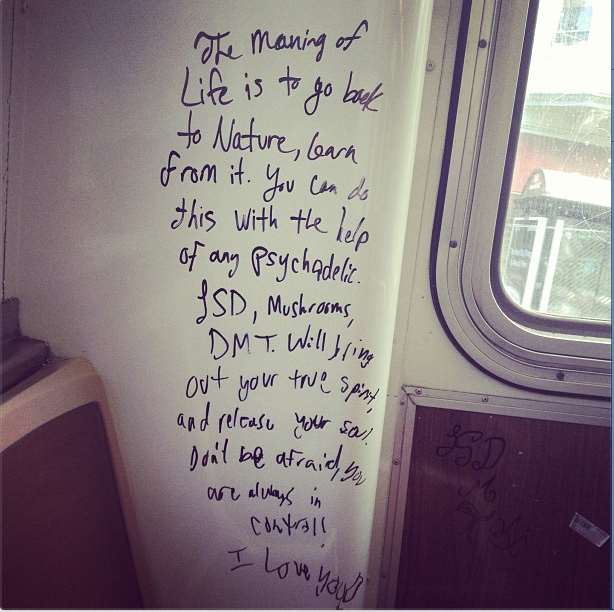 The Meaning of
Life is to go back
to Nature, learn
from it. You can do
this with the help
of any Psychadelic.
LSD, Mushrooms,
DMT. Will bring
out your true spirit,
and release your soul.
Don't be afraid, you
are always in
control!
I Love You!
LSD